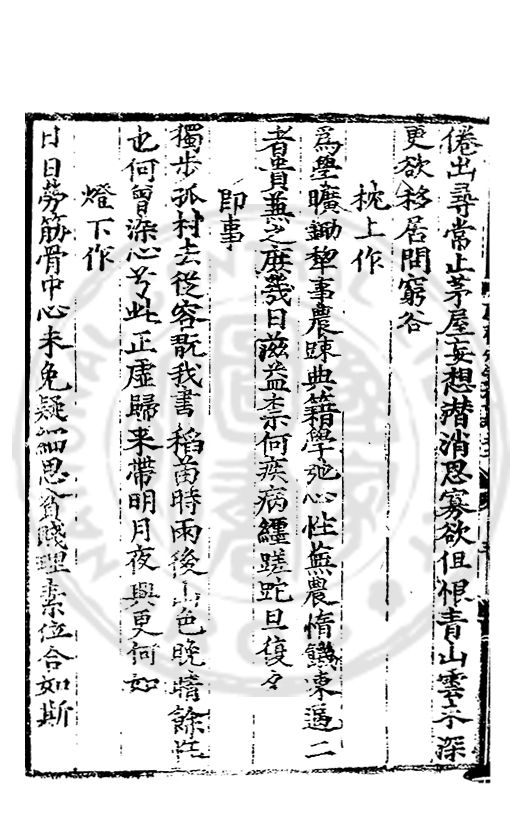 倦出尋常止茅屋妄想潛消思寡欲但恨青山雲未深
更欲移居問窮谷
枕上作
爲學曠鋤犂事農踈典籍學弛心性蕪農惰饑凍逼二
者貴兼之庶幾日滋益柰何疾病纏蹉跎旦復夕
即事
獨步孤村去從容翫我書稻苗時雨後山色晩晴餘
也何曾深心兮此正虛歸來帶明月夜興更何如
燈下作
日日勞筋骨中心未免疑細思貧賤理素位合如斯